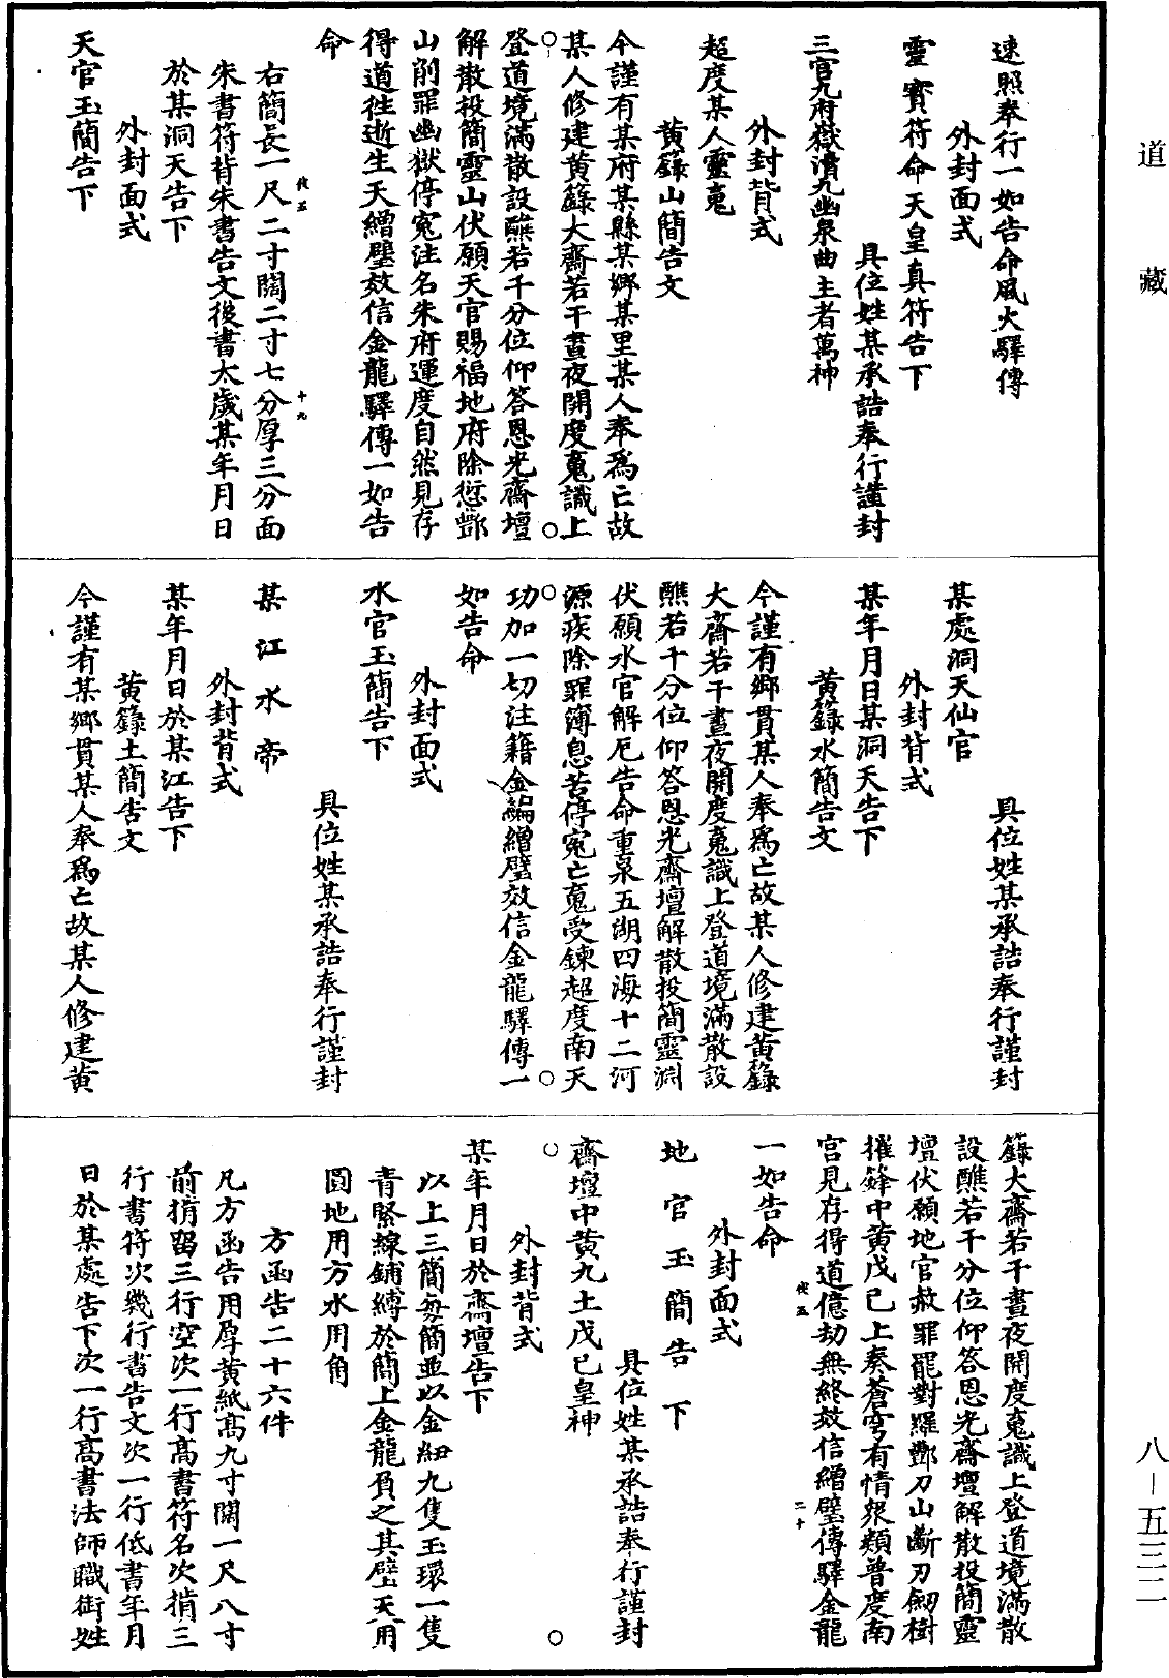 道藏
速照奉行一如告命風火驛傳
外封面式
靈寶符命天皇真符告下
具位姓某承誥奉行謹封
三官九府嶽瀆九幽泉曲主者萬神
外封背式
超度某人靈䰟
黄籙山簡告文
今謹有某府某縣某鄉某里某人奉爲亡故
某人修建黄籙大齋若干晝夜開度䰟識上
登道境滿散設醮若干分位仰答恩光齋壇
解散投簡靈山伏願天官賜福地府除愆酆
山削罪幽獄停寃注名朱府運度自然見存
得道徃逝生天繒璧效信金龍驛傳一如告
命
右簡長一尺二寸闊二寸七分厚三分面
朱書符背朱書告文後書太歲某年月日
於某洞天告下
外封面式
天官玉簡告下
某處洞天仙官
具位姓某承誥奉行謹封
外封背式
某年月日某洞天告下
黄籙水簡告文
今謹有鄉貫某人奉爲亡故某人修建黄籙
大齋若干晝夜開度䰟識上登道境滿散設
醮若干分位仰答恩光齋壇解散投簡靈淵
伏願水官解厄告命重泉五湖四海十二河
源疾除罪簿息苦停寃亡䰟受鍊超度南天
功加一切注籍金編繒璧效信金龍驛傳一
如告命
外封面式
水官玉簡告下
具位姓某承誥奉行謹封
某江水帝
外封背式
某年月日於某江告下
黄籙土簡告文
今謹有某鄉貫某人奉爲亡故某人修建黄
籙大齋若干晝夜開度䰟識上登道境滿散
設醮若干分位仰答恩光齋壇解散投簡靈
壇伏願地官赦罪罷對羅酆刀山斷刃劒樹
摧鋒中黄戊己上奏蒼穹有情衆類普度南
宮見存得道億劫無終效信繒璧傳驛金龍
一如告命
外封面式
地官玉簡告下
具位姓某承誥奉行謹封
齋壇中黄九土戊己皇神
外封背式
某年月日於齋壇告下
以上三簡每簡並以金鈕九隻玉環一隻
青緊線鋪縛於簡上金龍負之其璧天用
圓地用方水用角
方函告二十六件
凡方函告用厚黄紙高九寸闊一尺八寸
前揹留三行空次一行高書符名次揹三
行書符次幾行書告文次一行低書年月
日於某處告下次一行高書法師職銜姓
八-五三二